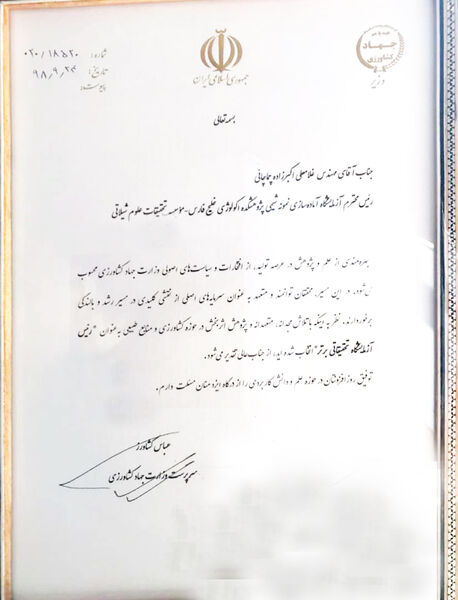 شماره: ۰۲۰/۱۸۵۲۰
تاریخ: ۹۸,۹,۲۳
پیوست:
جمهوری اسلامی ایران
جهاد
کشاورزی
وزیر
بسمه تعالی
جناب آقای مهندس غلامعلی اکبرزاده چماچائی
رئیس محترم آزمایشگاه آماده‌سازی نمونه شیمی پژوهشکده اکولوژی خلیج فارس - مؤسسه تحقیقات علوم شیلاتی
بهره‌مندی از علم و پژوهش در عرصه تولید، از افتخارات و سیاست‌های اصولی وزارت جهاد کشاورزی محسوب
می‌شود. در این مسیر، محققان توانمند و متعهد به عنوان سرمایه‌های اصلی از نقشی کلیدی در مسیر رشد و بالندگی
برخوردارند. نظر به اینکه با تلاش مجدانه، متعهدانه و پژوهش اثربخش در حوزه کشاورزی و منابع طبیعی به عنوان "رئیس
آزمایشگاه تحقیقاتی برتر" انتخاب شده‌اید، از جناب عالی تقدیر می‌شود.
توفیق روزافزونتان در حوزه علم و دانش کاربردی را از درگاه ایزد منان مسئلت دارم.
عباس کشاورز
سرپرست وزارت جهاد کشاورزی